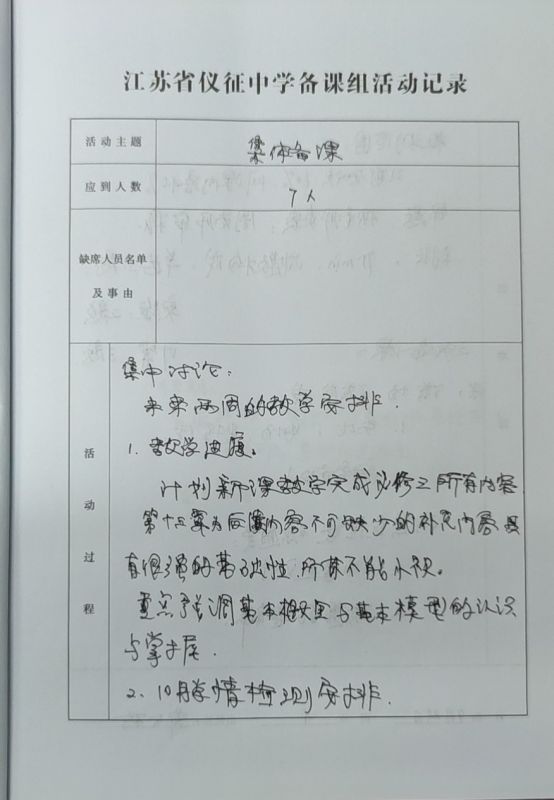 江苏省仪征中学备课组活动记录
活动主题
集体备课
应到人数
7人
缺席人员名单
及事由
活动过程
集中讨论：
未来两周的教学安排.
1. 教学进度。
计划新课教学完成必修三所有内容
第十三章为后续内容不可缺少的补充内容
有很强的基础性,所 不能小视。
重点强调基本概念与基本模型的认识
与掌握.
2、10月学情检测安排.